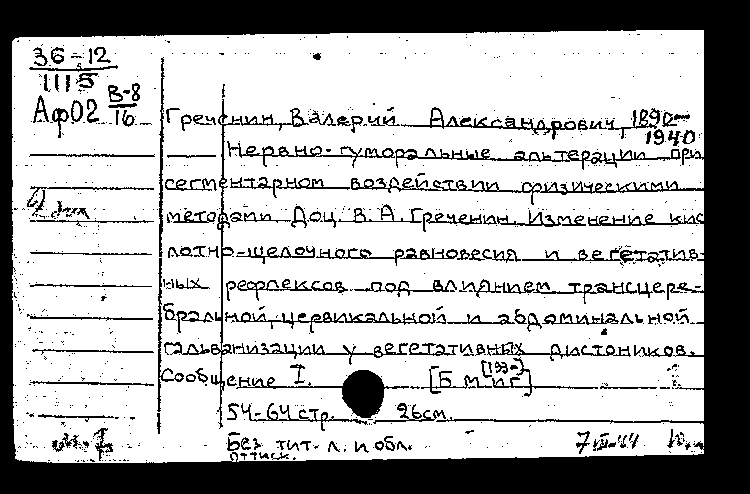 36-12
1115
Аф02 В-8
16
Греченин, Валерий Александрович, 1890-
1940
Нервно-гуморальные альтерации при
сегментарном воздействии физическими
методами Доц. В. А. Греченин. Изменение кис
лотно-щелочного равновесия и вегетатив-
ных рефлексов под влиянием трансцере-
бральной, цервикальной и абдоминальной
гальванизации у вегетативных дистоников.
Сообщение I. [Б. м. и г.]
54-64 стр. 26см.
Без тит. л. и обл. 7 III-44
оттиск.